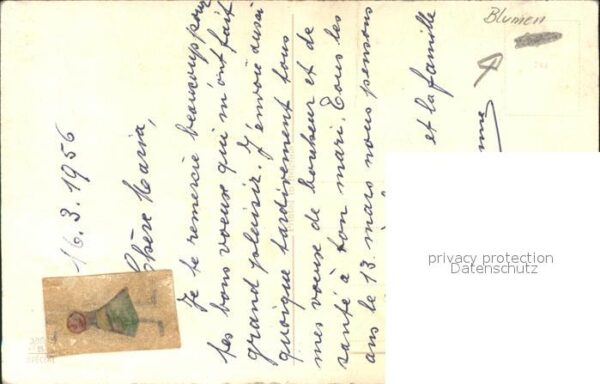 16.3.1956
Chère Maria,
Je te remercie beaucoup pour
tes bons voeux qui m'ont fait
grand plaisir. J'envoie aussi
quoique tardivement tous
mes voeux de bonheur et de
santé à ton mari. Tous les
ans le 13. mars nous pensons
et la famille
Blumen
privacy protection
Datenschutz